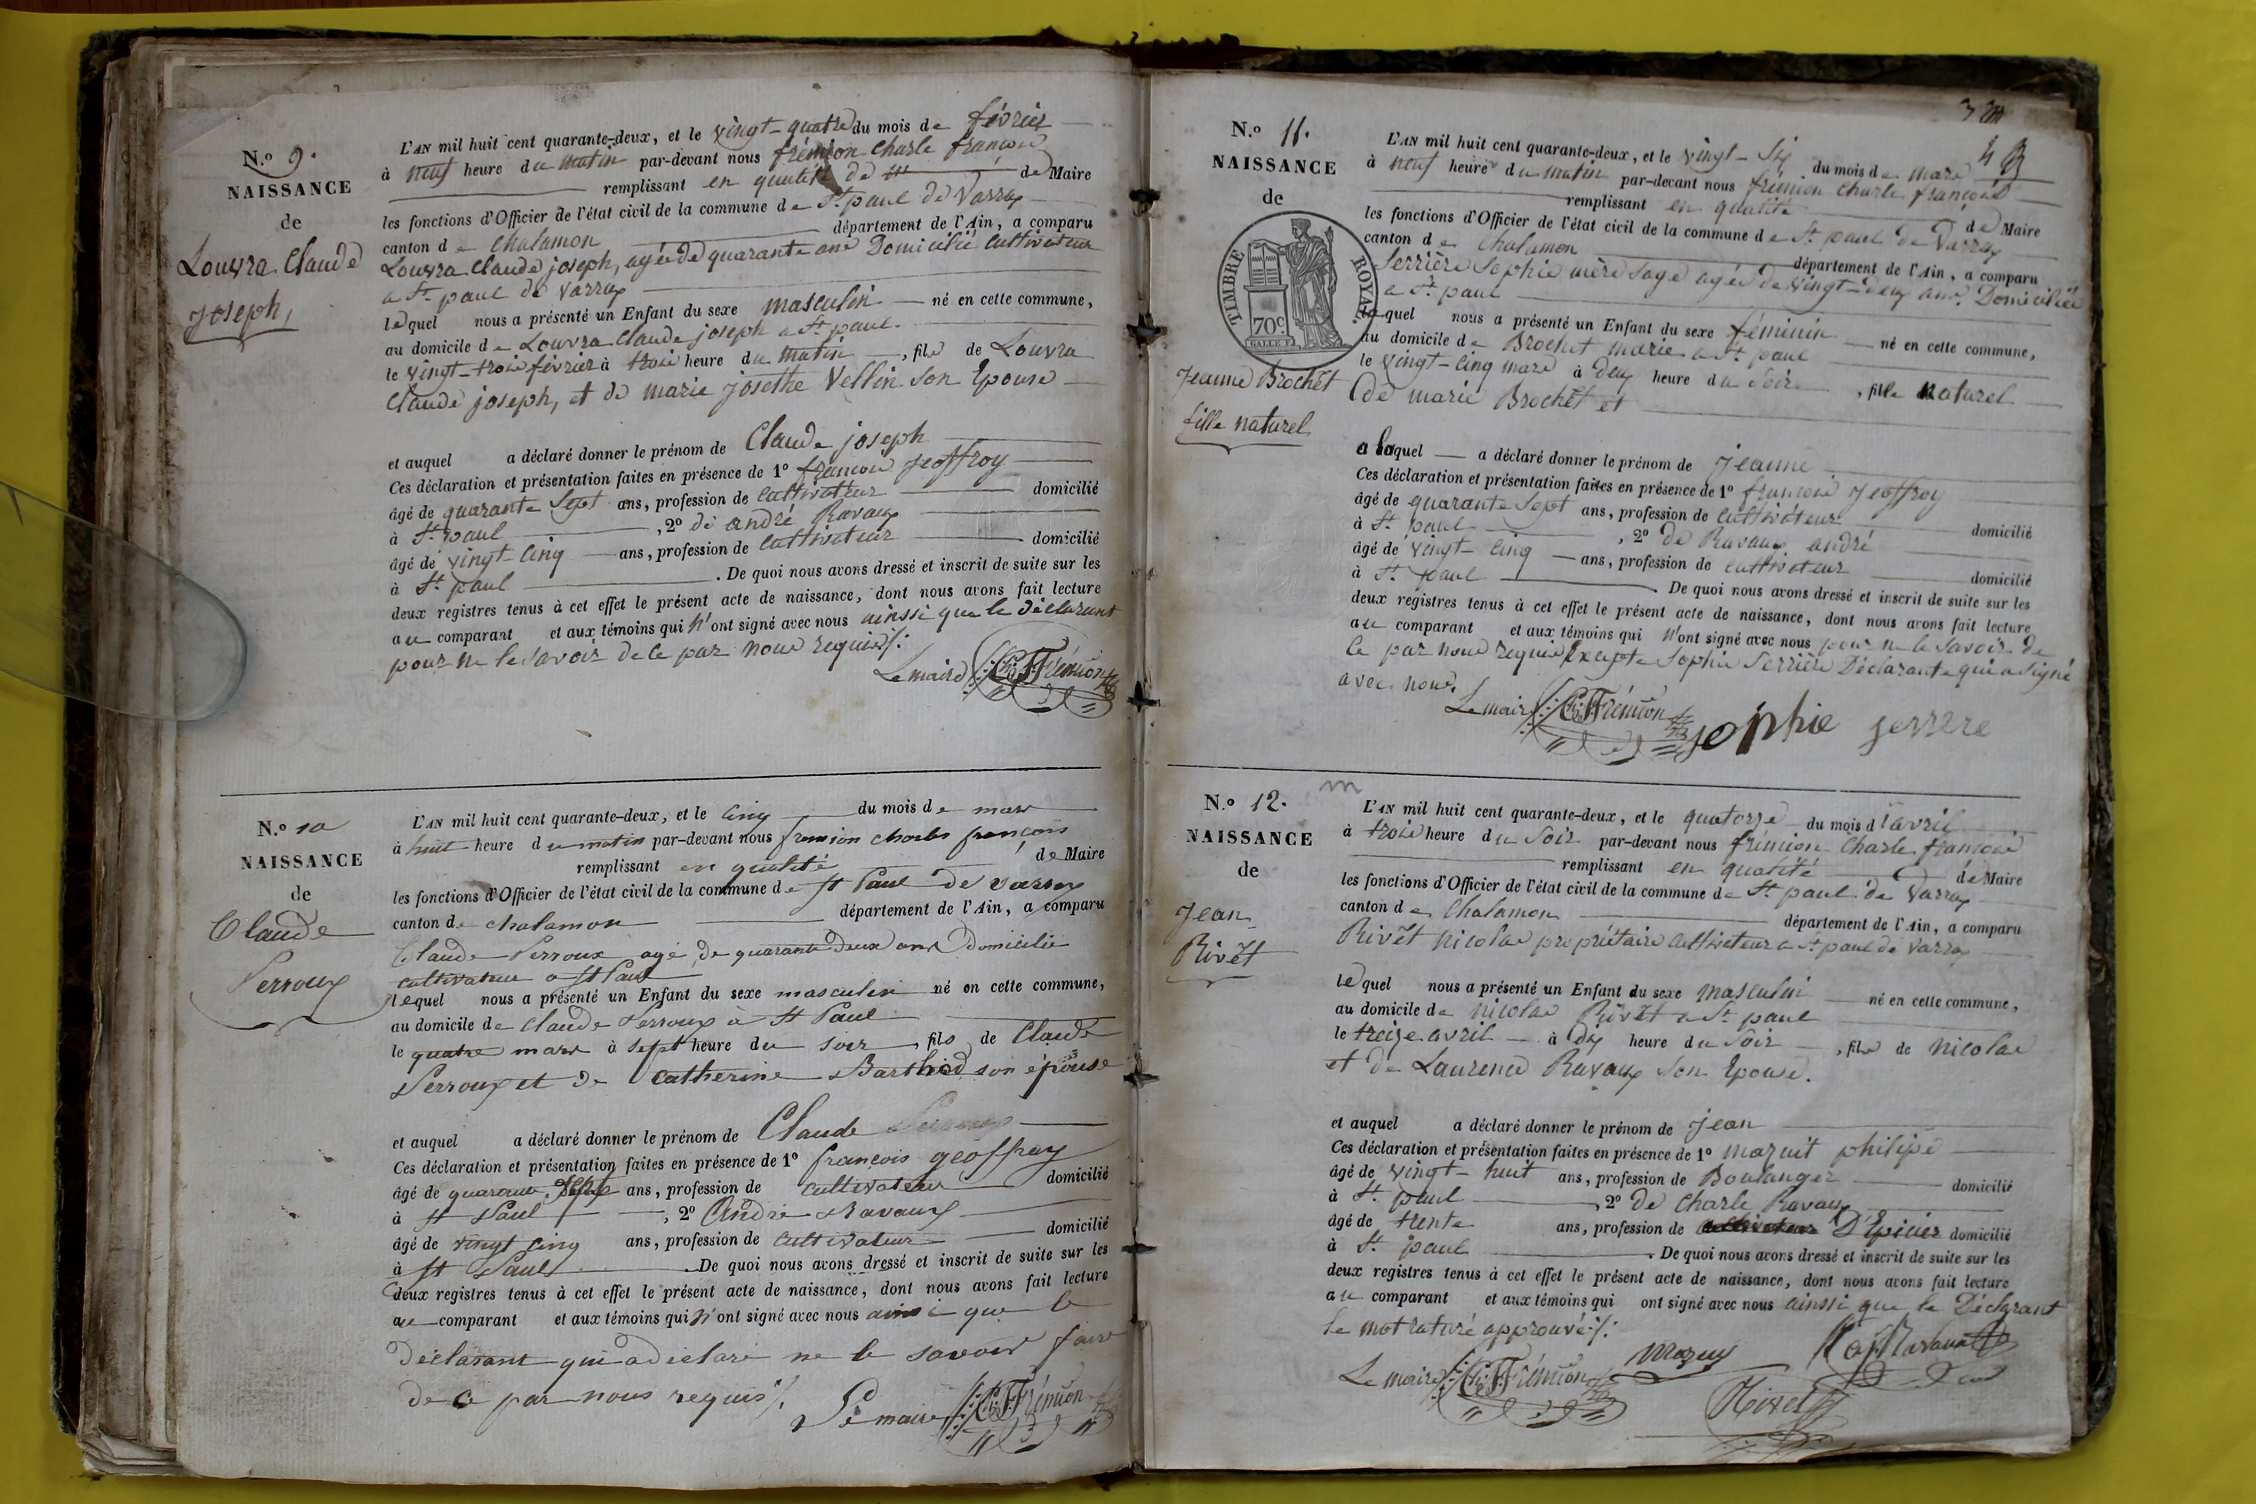 N.o 9.
NAISSANCE
de
Louvra Claude
joseph,
L'AN mil huit cent quarante-deux, et le vingt-quatre du mois de février
à neuf heure du matin par-devant nous frémion charle francois
remplissant en qualité de de Maire
les fonctions d'Officier de l'état civil de la commune de St. paul de Varrax
canton de chalamon département de l'Ain, a comparu
Louvra Claude joseph, agée de quarante ans Domicilié cultivateur
a St. paul de varrax
lequel nous a présenté un Enfant du sexe masculin né en cette commune,
au domicile de Louvra Claude joseph a St. paul.
le vingt-trois février à trois heure du matin, fils de Louvra
Claude joseph, et de marie josethe Vellin son Epouse
et auquel a déclaré donner le prénom de Claude joseph
Ces déclaration et présentation faites en présence de 1o francois jeoffroy
âgé de quarante Sept ans, profession de Cultivateur domicilié
à St. paul, 2o de andré Ravaux
âgé de vingt-Cinq ans, profession de Cultivateur domicilié
à St. paul. De quoi nous avons dressé et inscrit de suite sur les
deux registres tenus à cet effet le présent acte de naissance, dont nous avons fait lecture
au comparant et aux témoins qui n'ont signé avec nous ainssi que le Déclarant
pour ne le savoir de ce par nous requis/:
Le maire Ch. F. Frémion
N.o 10
NAISSANCE
de
Claude
Perroux
L'AN mil huit cent quarante-deux, et le cinq du mois de mars
à huit heure du matin par-devant nous fremion charles françois
remplissant en qualité de Maire
les fonctions d'Officier de l'état civil de la commune de St Paul de varax
canton de chalamon département de l'Ain, a comparu
Claude Perroux agé de quarante deux ans domicilié
cultivateur a St Paul
lequel nous a présenté un Enfant du sexe masculin né en cette commune,
au domicile de Claude Perroux à St Paul
le quatre mars à sept heure du soir, fils de Claude
Perroux et de Catherine Barthod son épouse
et auquel a déclaré donner le prénom de Claude
Ces déclaration et présentation faites en présence de 1o françois geoffray
âgé de quarante Sept ans, profession de cultivateur domicilié
à St Paul, 2o André Ravaux
âgé de vingt cinq ans, profession de cultivateur domicilié
à St Paul. De quoi nous avons dressé et inscrit de suite sur les
deux registres tenus à cet effet le présent acte de naissance, dont nous avons fait lecture
au comparant et aux témoins qui n'ont signé avec nous ainsi que le
déclarant qui a déclaré ne le savoir faire
de ce par nous requis/.
Le maire Ch. F. Frémion
N.o 11.
NAISSANCE
de
TIMBRE ROYAL.
70c
Jeanne Brochet
fille naturel
L'AN mil huit cent quarante-deux, et le vingt-Six du mois de mars
à neuf heure du matin par-devant nous frémion charle françois
remplissant en qualité de Maire
les fonctions d'Officier de l'état civil de la commune de St. paul de Varrax
canton de chalamon département de l'Ain, a comparu
Serrière Sophie mère sage agée de vingt-deux ans, Domiciliée
a St. paul
laquel nous a présenté un Enfant du sexe féminin né en cette commune,
au domicile de Brochet marie a St. paul
le vingt-Cinq mars à deux heure du Soir, fille naturel
de marie Brochet et
a laquel a déclaré donner le prénom de jeanne
Ces déclaration et présentation faites en présence de 1o francois jeoffroy
âgé de quarante Sept ans, profession de Cultivateur domicilié
à St. paul, 2o de Ravaux andré
âgé de vingt-Cinq ans, profession de Cultivateur domicilié
à St. paul De quoi nous avons dressé et inscrit de suite sur les
deux registres tenus à cet effet le présent acte de naissance, dont nous avons fait lecture
au comparant et aux témoins qui n'ont signé avec nous pour ne le savoir de
Ce par nous requis Excepte Sophie Serrière Déclarante qui a signé
avec nous.
Le maire Ch. F. Frémion
sophie serrere
N.o 12.
NAISSANCE
de
Jean
Rivet
L'AN mil huit cent quarante-deux, et le quatorze du mois d'avril
à trois heure du Soir par-devant nous frémion Charle francois
remplissant en qualité de Maire
les fonctions d'Officier de l'état civil de la commune de St. paul de Varrax
canton de Chalamon département de l'Ain, a comparu
Rivet nicolas propriétaire cultivateur a St. paul de varrax
lequel nous a présenté un Enfant du sexe masculin né en cette commune,
au domicile de nicolas Rivet a St. paul
le treize avril à dix heure du Soir, fils de nicolas
et de Laurence Ravaux Son Epouse.
et auquel a déclaré donner le prénom de jean
Ces déclaration et présentation faites en présence de 1o mazuit philipe
âgé de vingt-huit ans, profession de Boulanger domicilié
à St. paul, 2o de charle Ravaux
âgé de trente ans, profession de cultivateur D'Epicier domicilié
à St. paul. De quoi nous avons dressé et inscrit de suite sur les
deux registres tenus à cet effet le présent acte de naissance, dont nous avons fait lecture
au comparant et aux témoins qui ont signé avec nous ainssi que le Déclarant
le mot raturé approuvé/:
Le maire Ch. F. Frémion
Mazuy
Ravaux
Rivet